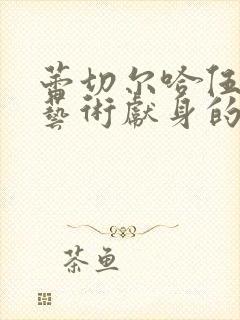 蕾切尔哈伍
藝術獻身的
茶鱼